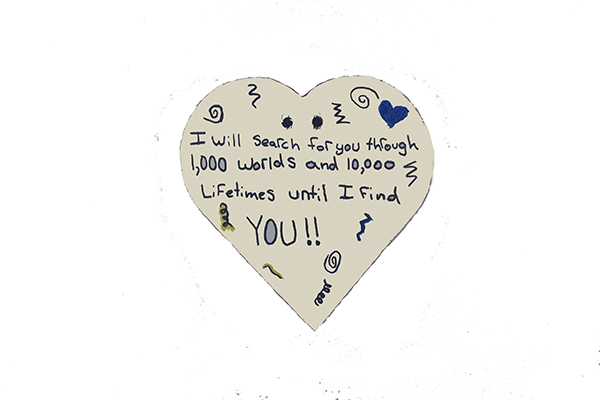 I will search for you through
1,000 worlds and 10,000
Lifetimes until I find
YOU!!